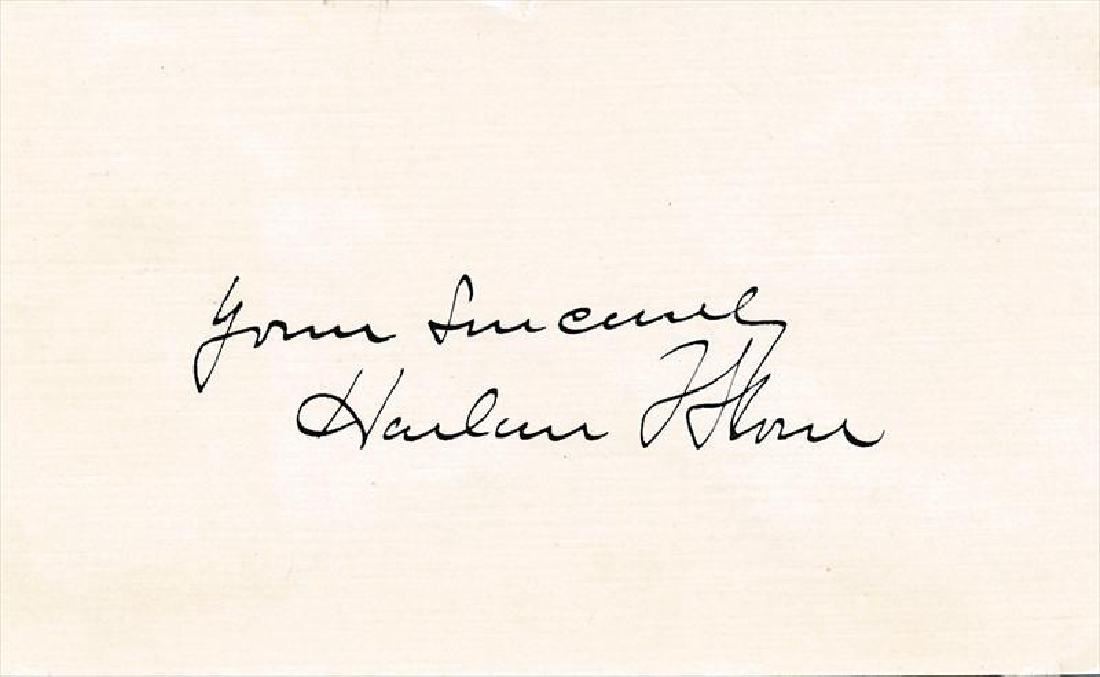 Yours Sincerely
Harlan F Stone